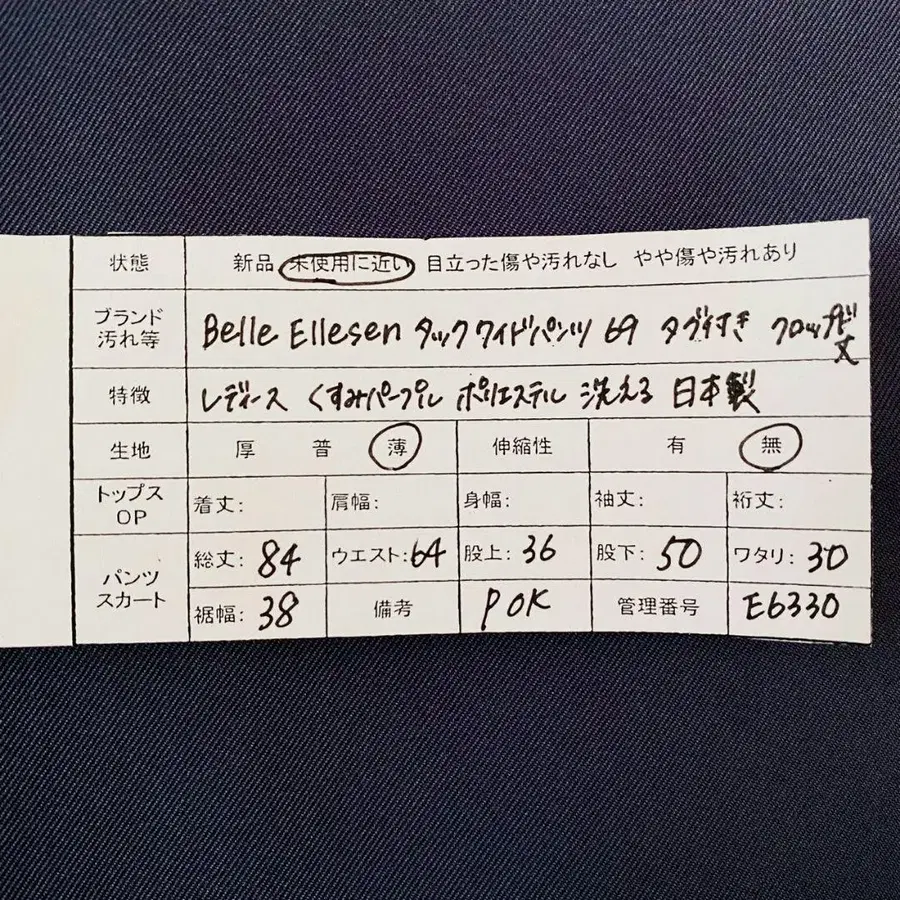 状態 新品 未使用に近い 目立った傷や汚れなし やや傷や汚れあり
ブランド 汚れ等 Belle Ellesen タックワイドパンツ 69 タグ付き クロップド丈
特徴 レディース くすみパープル ポリエステル 洗える 日本製
生地 厚 普 薄 伸縮性 有 無
トップス OP 着丈: 肩幅: 身幅: 袖丈: 裄丈:
パンツ スカート 総丈: 84 ウエスト: 64 股上: 36 股下: 50 ワタリ: 30
裾幅: 38 備考 POK 管理番号 E6330